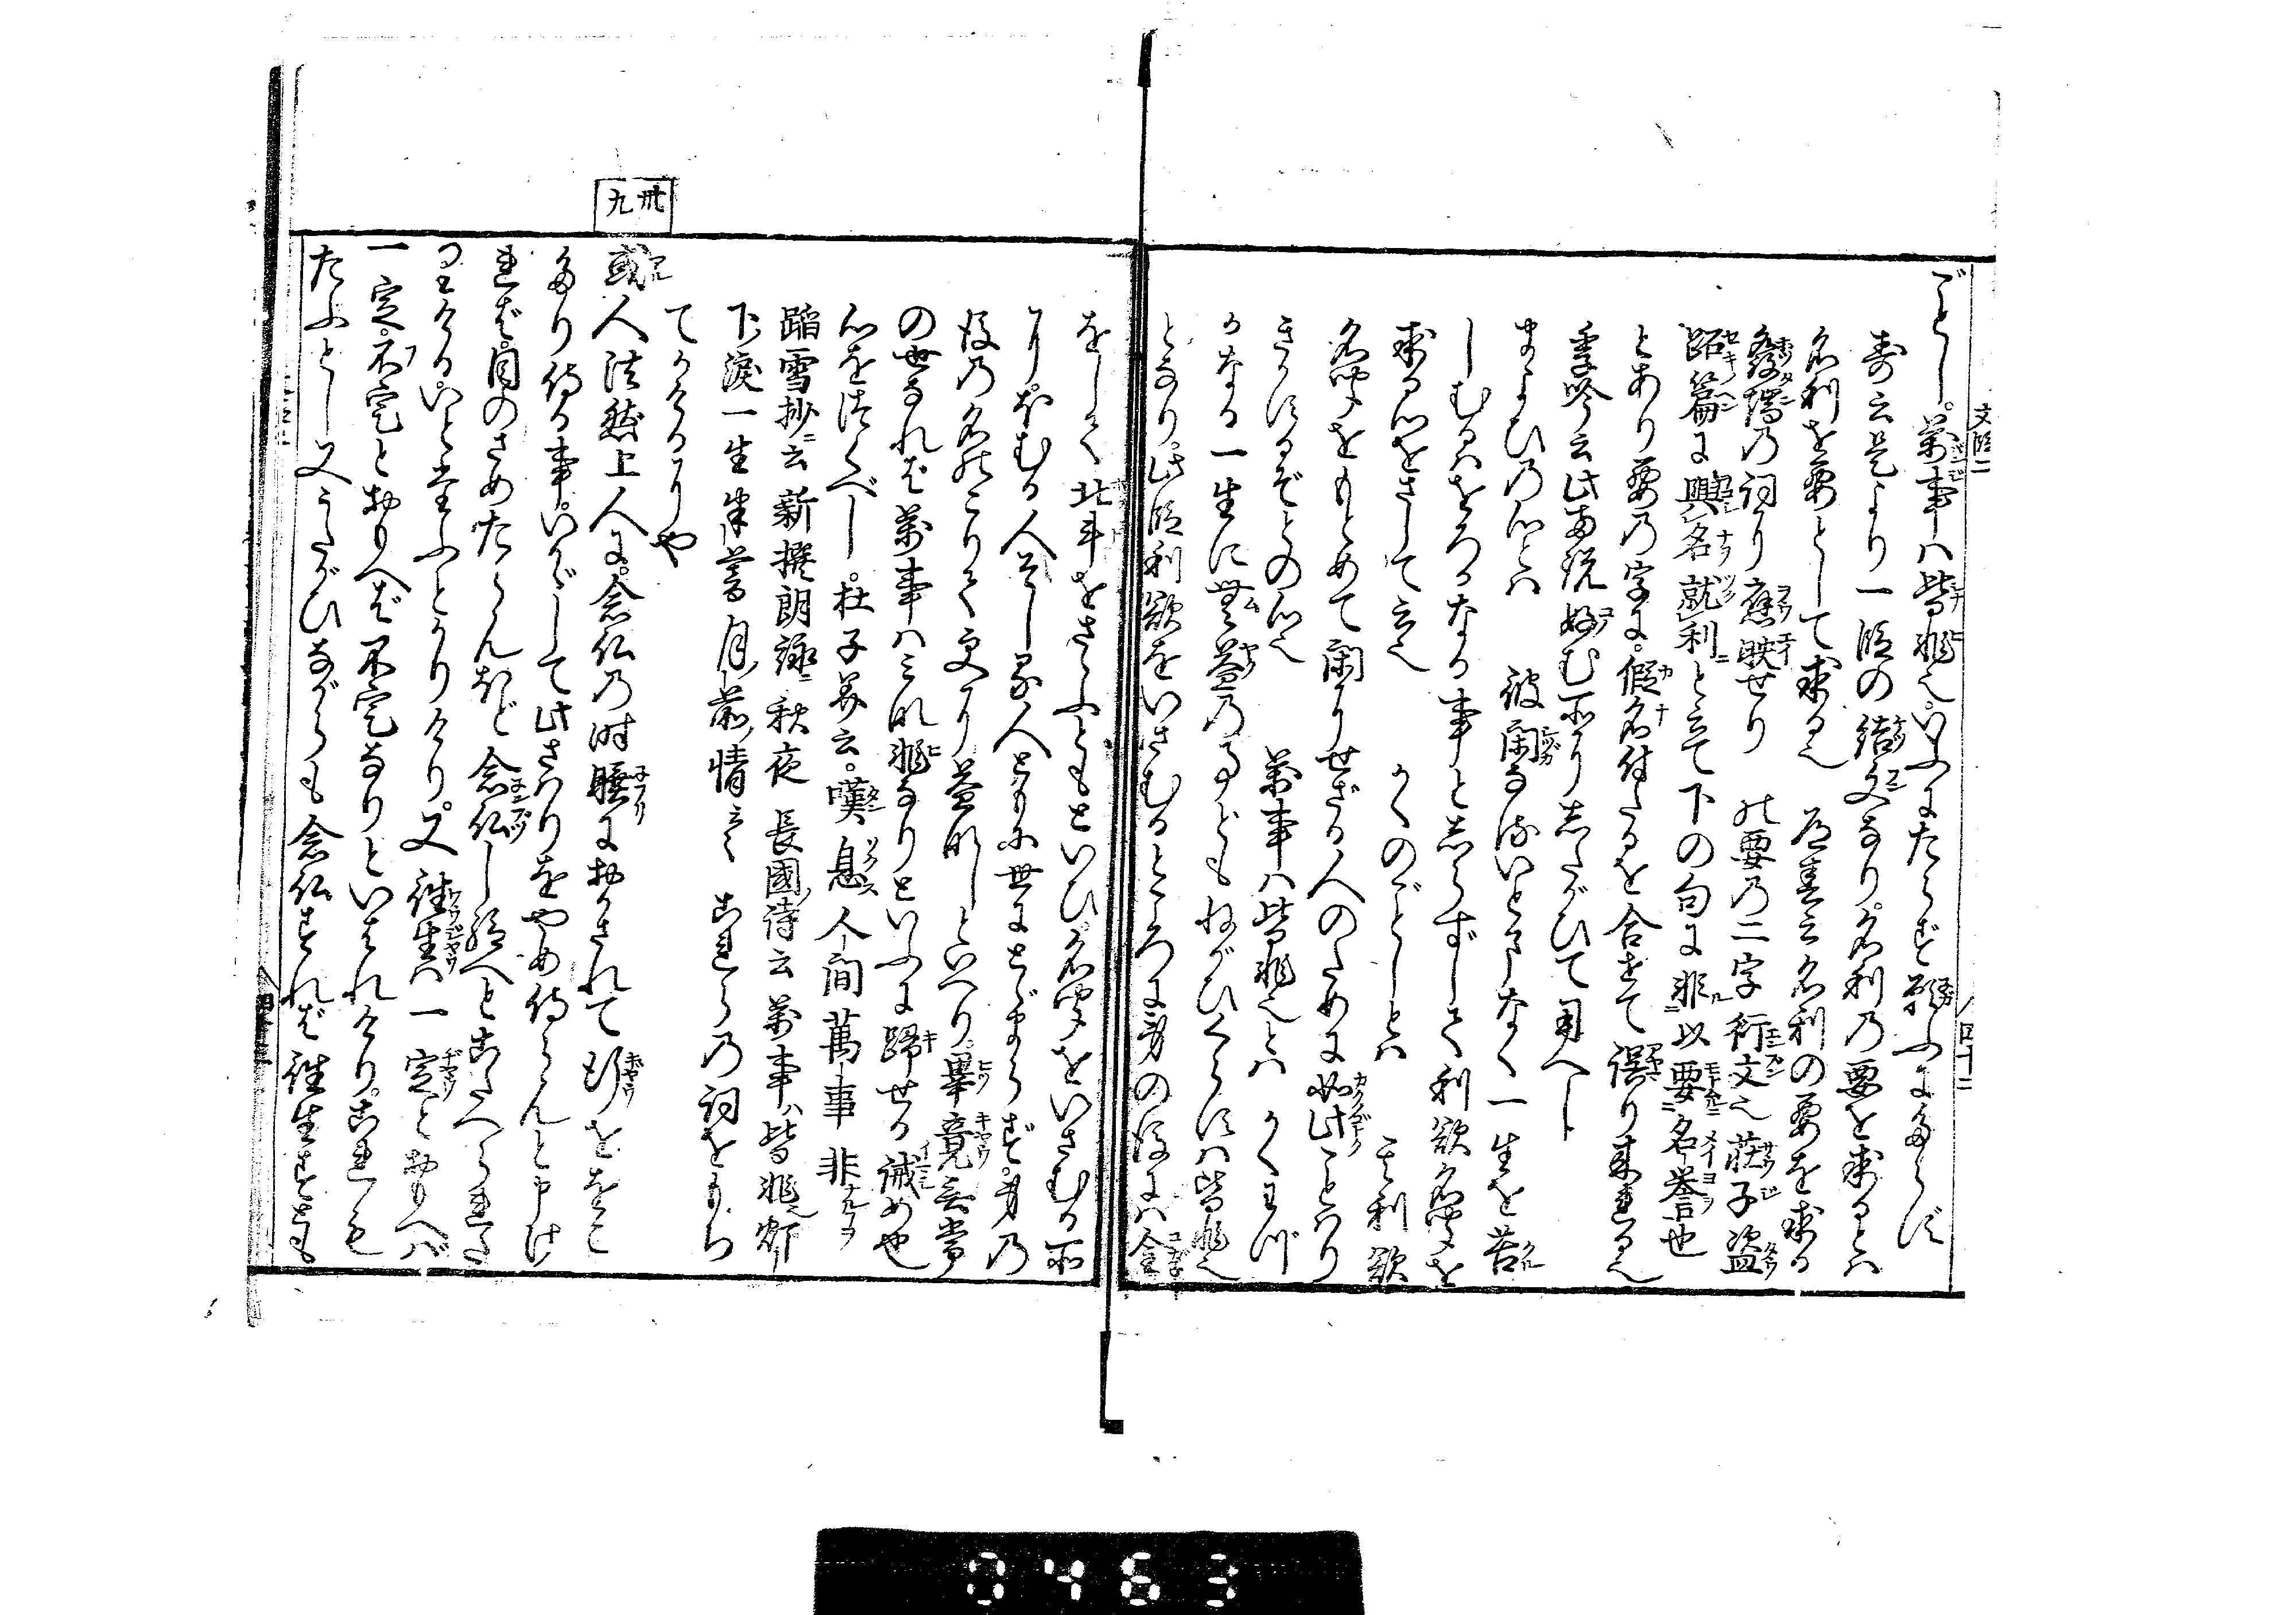 文段二
八四十二
ごとし。萬事ハ皆非也。いふにたらず願ふにたらず
壽云是より一段の結文なり。名利の要を求るとハ
名利を要として求る也 盤斎云名利の要を求る
發端の詞り應映せり 此要の二字衍文也 荘子盗
跖篇に興名就利と立て下の句に非以要名誉也
とあり要の字に。假名付たるを合せて誤り来れる也
季吟云此両説好む所りしたがひて用へし
まよひの心とハ 彼閑なるいとまなく一生を苦
しむるハをろかなる事としらずして利欲名聞を
求る心をさして云也 かくのごとしとハ 其利欲
名聞をもとめて閑りせざる人のために如此ことハり
きかするぞとの心也 萬事ハ皆非也とハ かくまづ
かなる一生に無益の事どもねがひくらすハ皆非也
となり。此段利欲をいさむるところに身の後にハ金
をして北斗をさゝふともといひ。名聞をいさむる所
り。ほむる人そしる人ともに世にとゞまらず。身の
後の名殘りて更り益なしといへり。畢竟無常
の世なれバ萬事ハみな非なりといふに歸せる誡め也
心を注くべし。杜子美云。嘆息人間萬事非
蹈雪抄云新撰朗詠秋夜 長國詩云萬事皆非鄰
下涙一生半暮月前情云〻 これらの詞をもち
てかけるりや
卅九
或人法然上人に。念仏の時睡におかされて行ををこ
たり侍る事。いかゞして此さハりをやめ侍らんと申け
れバ。目のさめたらんほど念仏し給へとこたへられた
りける。いとたふとかりけり。又往生ハ一定とおもへバ
一定。不定とおもへバ不定なりといはれけり。これも
たふとし又うたがひながらも念仏すれバ往生すとも